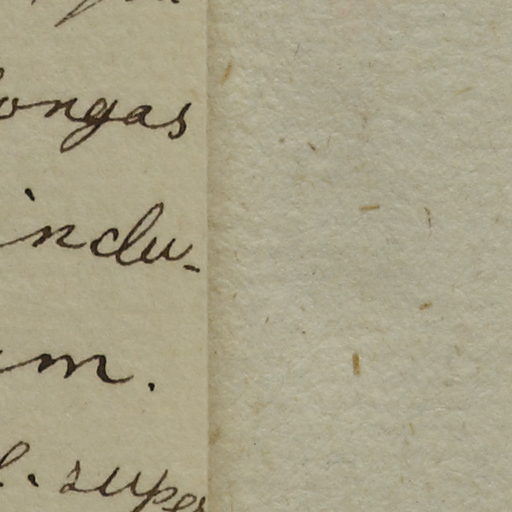 longas
inclu-
m.
l. super